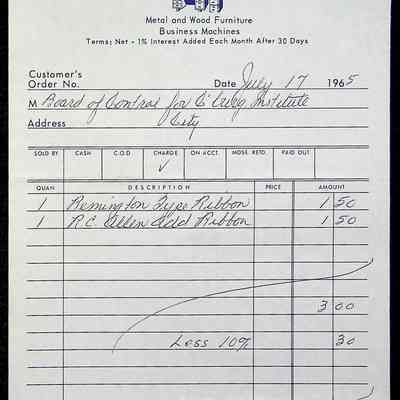 Metal and Wood Furniture
Business Machines
Terms; Net - 1% Interest Added Each Month After 30 Days
Customer's
Order No. Date July 17 1965
M Board of Control for Institute
Address City
SOLD BY CASH C.O.D CHARGE ON ACCT. MDSE. RETD. PAID OUT
✓
QUAN DESCRIPTION PRICE AMOUNT
1 Remington Type Ribbon 1 50
1 R.C. Allen Add Ribbon 1 50
3 00
Less 10% 30